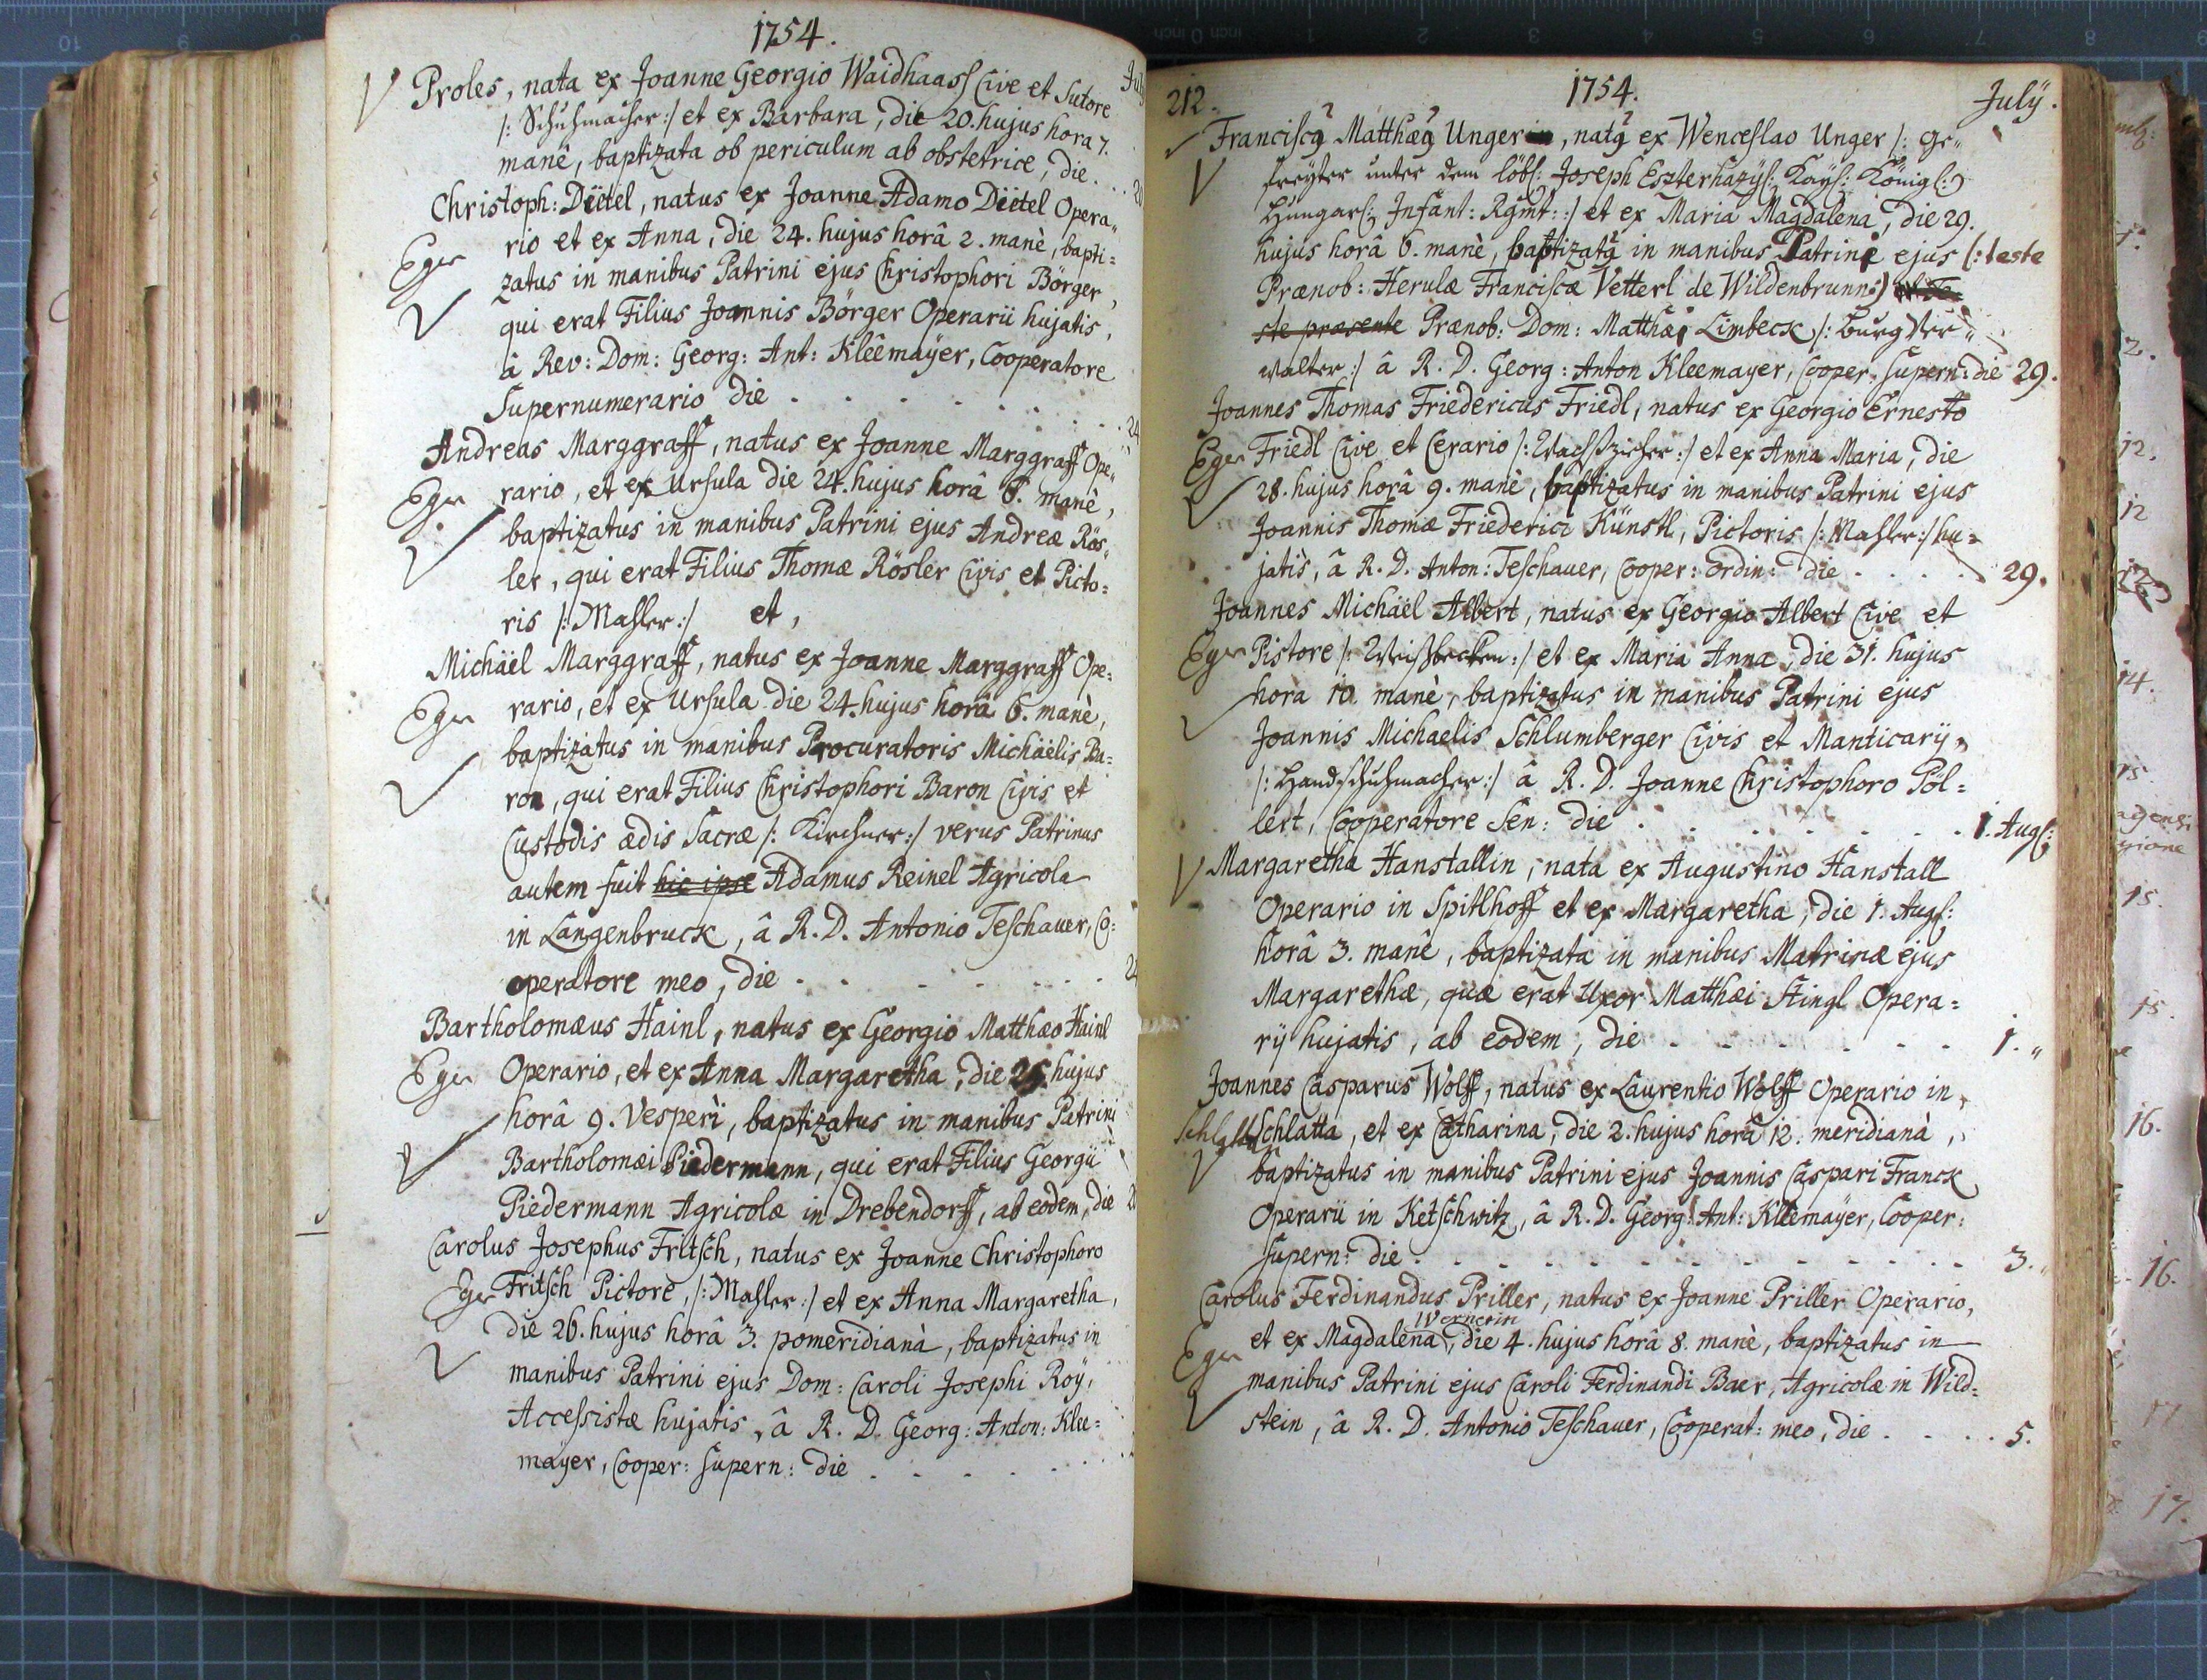 1754.
July
Proles, nata ex Joanne Georgio Waidhaass Cive et Sutore
/: Schuhmacher :/ et ex Barbara, die 20. hujus hora 7.
manè, baptizata ob periculum ab obstetrice, die . . . 20
Christoph: Dietel, natus ex Joanne Adamo Dietel Opera„
Eger
rio et ex Anna, die 24. hujus horâ 2. manè, bapti=
zatus in manibus Patrini ejus Christophori Börger,
qui erat Filius Joannis Börger Operarii hujatis,
â Rev: Dom: Georg: Ant: Kleêmaÿer, Cooperatore
Supernumerario die . . . . . . . . 24
Andreas Marggraff, natus ex Joanne Marggraff Ope„
Eger rario, et ex Ursula die 24. hujus horâ 6. manè,
baptizatus in manibus Patrini ejus Andreæ Rös„
ler, qui erat Filius Thomæ Rösler Civis et Picto=
ris /: Mahler :/ et,
Michäel Marggraff, natus ex Joanne Marggraff Ope=
Eger rario, et ex Ursula die 24. hujus horâ 6. manè,
baptizatus in manibus Procuratoris Michäelis Ba=
ron, qui erat Filius Christophori Baron Civis et
Custodis ædis Sacræ /: Kirchner :/ verus Patrinus
autem fuit hic ipse Adamus Reinel Agricola
in Langenbruck, â R. D. Antonio Teschauer, Co=
operatore meo, die . . . . . . . 24
Bartholomæus Hainl, natus ex Georgio Matthæo Hainl
Eger Operario, et ex Anna Margaretha, die 25. hujus
horâ 9. Vesperi, baptizatus in manibus Patrini
Bartholomæi Piedermann, qui erat Filius Georgii
Piedermann Agricolæ in Drebendorff, ab eodem, die
Carolus Josephus Fritsch, natus ex Joanne Christophoro
Eger Fritsch Pictore, /: Mahler :/ et ex Anna Margaretha,
die 26. hujus horâ 3. pomeridianà, baptizatus in
manibus Patrini ejus Dom: Caroli Josephi Roÿ,
Accessistæ hujatis, â R. D. Georg: Anton: Klee=
mayer, Cooper: supern: die . . . . . .
212.
1754.
Julÿ.
Franciscq Matthæq Unger, natq ex Wenceslao Unger /: Ge„
freyter unter dem löbl: Joseph Eszterhazyl: Kaÿs: Königl:
Hungarl: Infant: Rgmt: :/ et ex Maria Magdalena, die 29.
hujus horâ 6. manè, baptizatq in manibus Patrini ejus (: teste
Prænob: Herulæ Franciscæ Vetterl de Wildenbrunn :) et Te=
ste præsente Prænob: Dom: Matthæi Limbeck /: Burg Ver=
walter :/ â R. D. Georg: Anton Kleemayer, Cooper: Supern: die 29.
Joannes Thomas Friedericus Friedl, natus ex Georgio Ernesto
Eger Friedl Cive et Cerario /: Wachszieher :/ et ex Anna Maria, die
28. hujus horâ 9. manè, baptizatus in manibus Patrini ejus
Joannis Thomæ Friederici Künstl, Pictoris /: Mahler :/ hu=
jatis, â R. D. Anton: Teschauer, Cooper: ordin: die . . . . 29.
Joannes Michäel Albert, natus ex Georgio Albert Cive et
Eger Pistore /: Weißbecken :/ et ex Maria Anna, die 31. hujus
hora 10 manè, baptizatus in manibus Patrini ejus
Joannis Michaelis Schlumberger Civis et Manticarÿ
/: Handschuhmacher :/ â R. D. Joanne Christophoro Pöl=
lert, Cooperatore Sen: die . . . . . . . 1. Aug:
Margaretha Hanstallin, nata ex Augustino Hanstall
Operario in Spitlhoff et ex Margaretha, die 1. Aug:
horâ 3. manè, baptizata in manibus Matrinæ ejus
Margarethæ, quæ erat Uxor Matthæi Stingl Opera=
rÿ hujatis, ab eodem, die . . . . . . . 1. „
Joannes Casparus Wolff, natus ex Laurentio Wolff Operario in
Schlatta Schlatta, et ex Catharina, die 2. hujus horâ 12. meridianà,
baptizatus in manibus Patrini ejus Joannis Caspari Franck
Operarii in Ketschwitz, â R. D. Georg: Ant: Kleemaÿer, Cooper:
supern: die . . . . . . . . . . 3. „
Carolus Ferdinandus Priller, natus ex Joanne Priller Operario,
Wernerin
Eger et ex Magdalena, die 4. hujus horâ 8. manè, baptizatus in
manibus Patrini ejus Caroli Ferdinandi Baer, Agricolæ in Wild=
stein, â R. D. Antonio Teschauer, Cooperat: meo, die . . . . 5.
2.
12.
12
14.
15.
15.
15.
16.
16.
17
17.